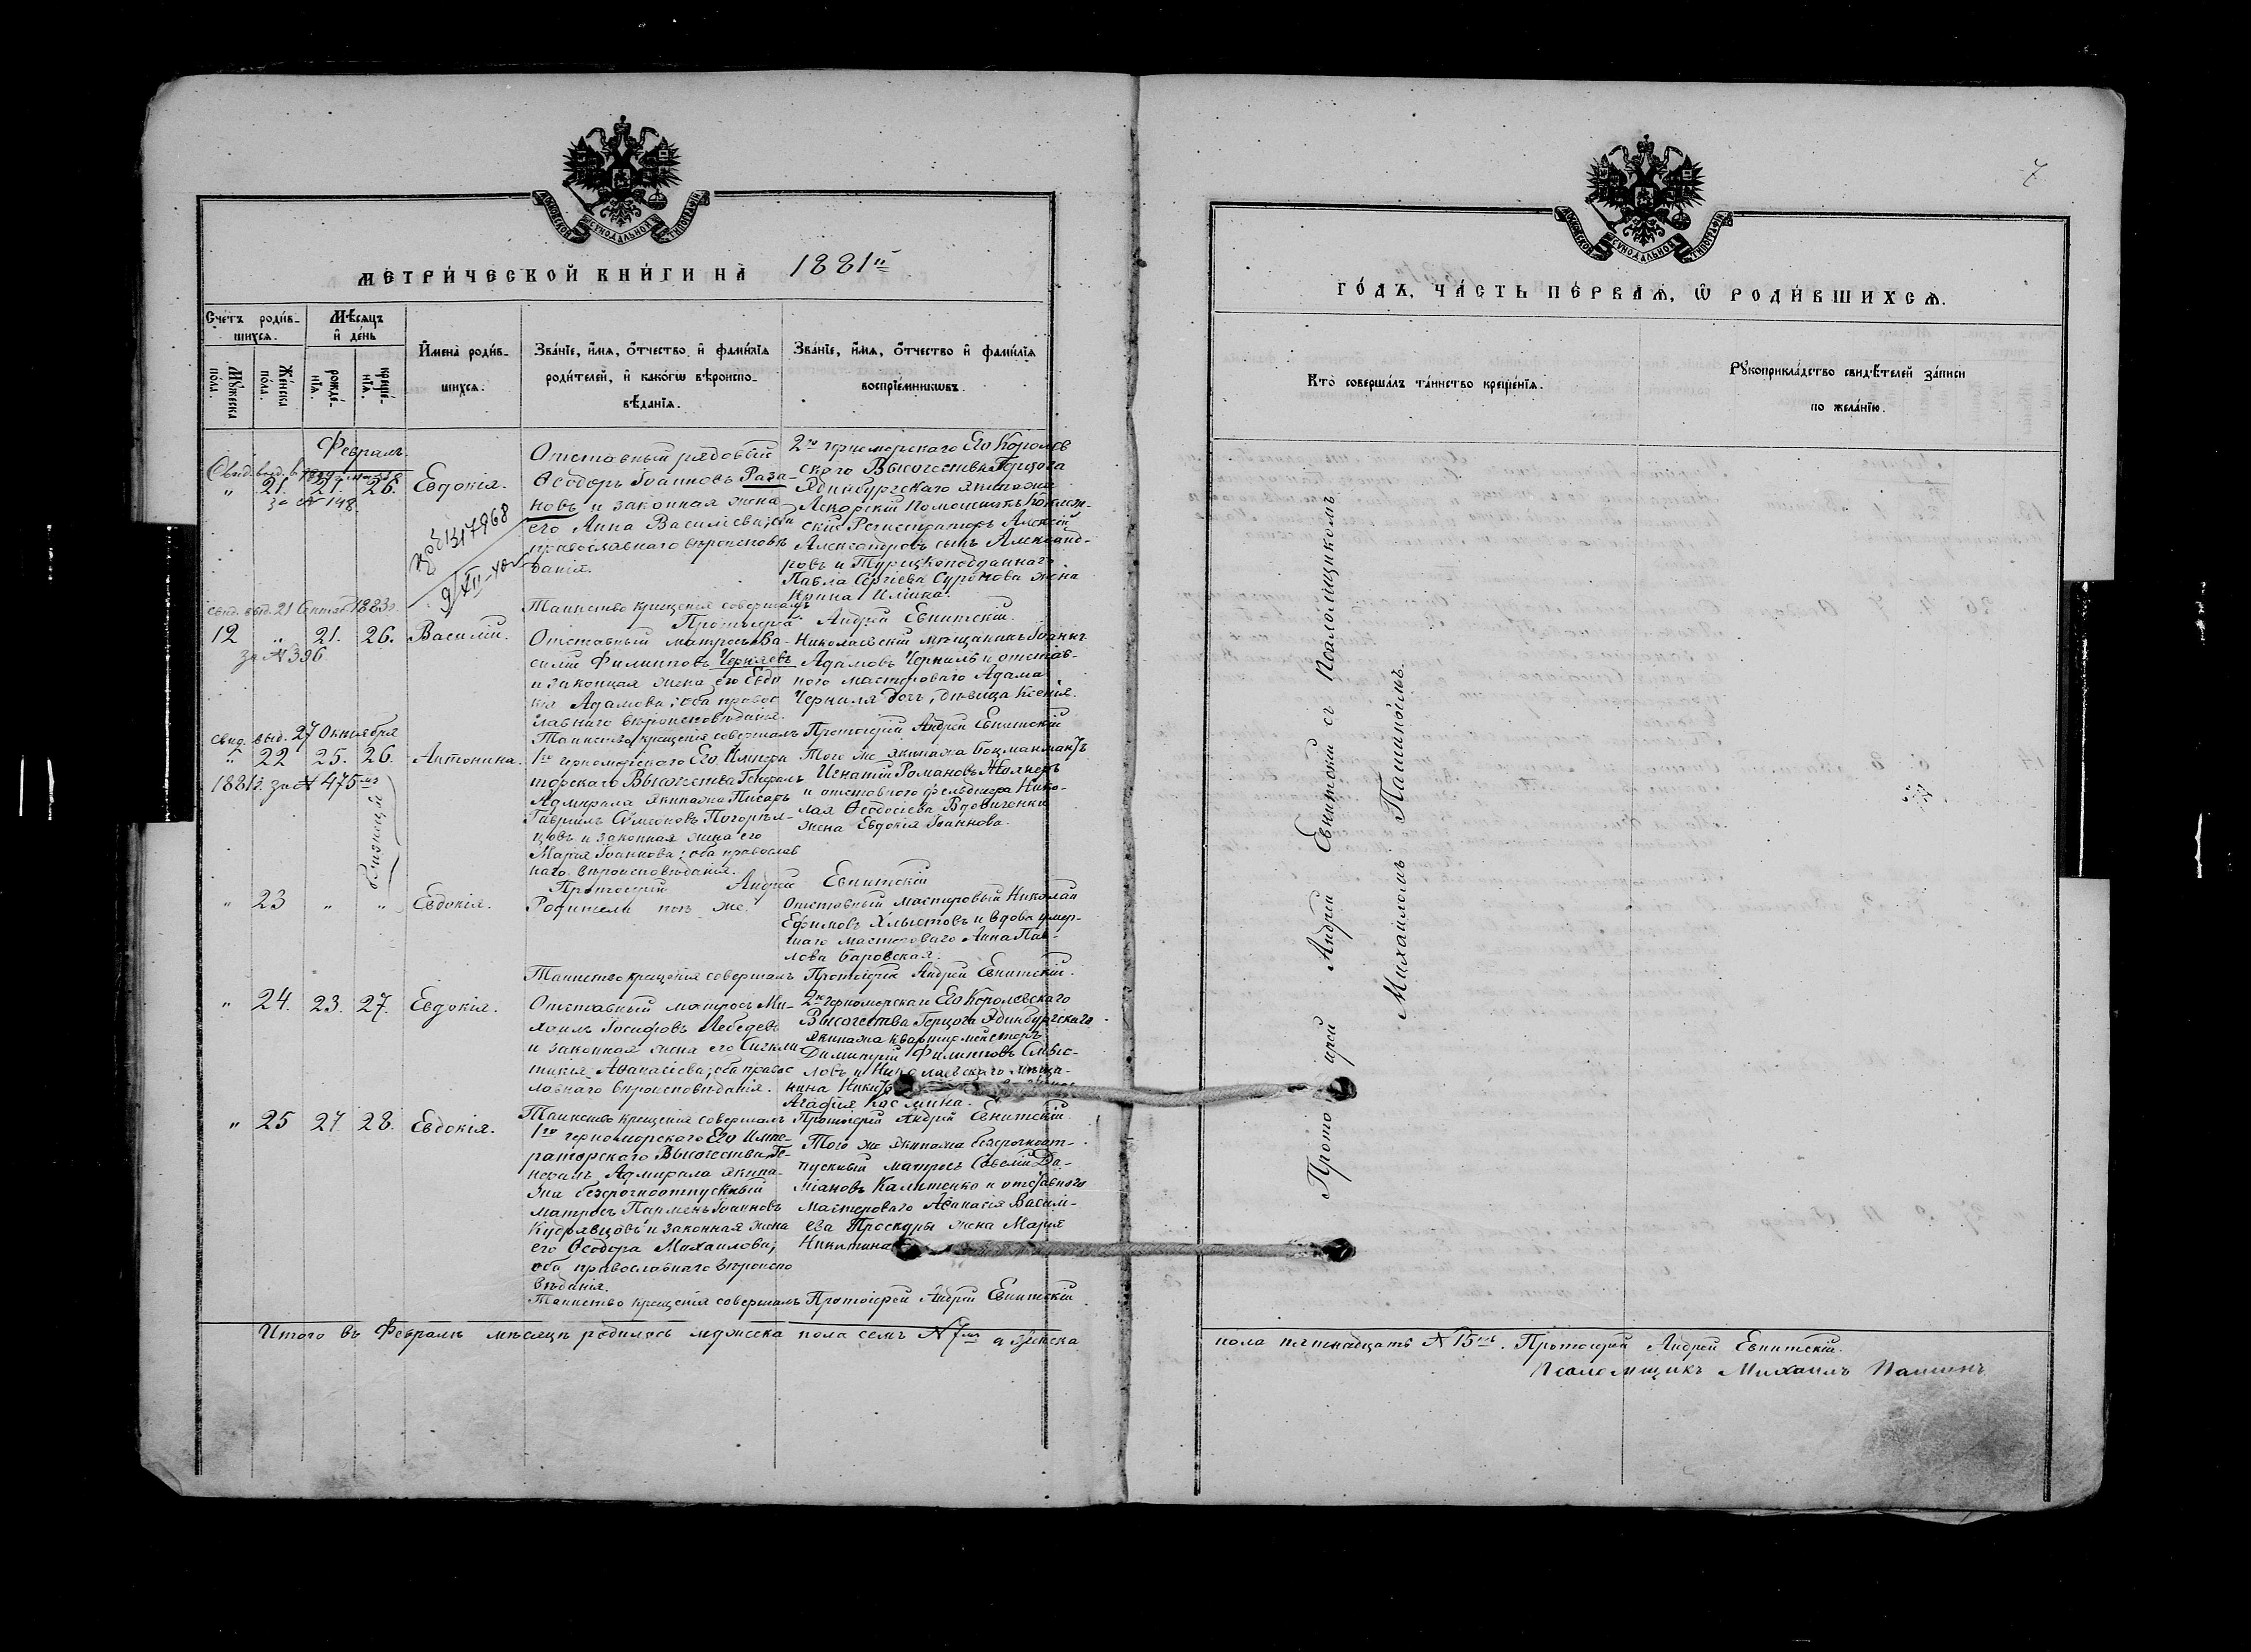 МОСКОВСКОЙ СѴНОДАЛЬНОЙ ТИПОГРАФІИ
МЕТРИ́ЧЕСКОЙ КНИ́ГИ НА̀ 1881й
Сче́тъ роди́в-
шихся.
Мѣ́сяцъ
и҆ де́нь
Мꙋ́жеска по́ла.
Же́нска по́ла.
рожде́-нїя.
креще́-нїя.
И҆мена̀ роди́в-
шихся.
Зва́нїе, и҆́мя, ѻ҆́тчество и҆ фами́лїя
роди́телей, и҆ како́гѡ вѣроиспо-
вѣ́данїя.
Зва́нїе, и҆́мя, ѻ҆́тчество и҆ фами́лїя
воспрїе́мникѡвъ.
Февраль.
Свид. выд. в
" 21. 21. 26. Евдокія.
за № 148.
9/XII-40
Отставный рядовый
Ѳеодоръ Іоанновъ Раза-
новъ и законная жена
его Анна Васильева; оба
православнаго вѣроисповѣ
данія.
2го черноморскаго Его Королев
скаго Высочества Герцога
Эдинбургскаго экипажа
Лекарскій Помошникъ Коллеж-
скій Регистраторъ Алексѣй
Александровъ сынъ Александ-
ровъ и Турецкоподданнаго
Павла Сергіева жена
Ирина Иліина.
Таинство крещенія совершалъ
Протоіерей Андрей Евнитскій.
свид. выд. 21 1883г.
12 " 21. 26. Василій.
за № 396
Отставный матросъ Ва-
силій Филипповъ Черняевъ
и законная жена его Евдо
кія Адамова; оба правос
лавнаго вѣроисповѣданія.
Николаевскій мѣщанинъ Іоаннъ
Адамовъ Черниль и отстав-
ного мастероваго Адама
Черниля дочь, дѣвица Ксенія.
Таинство крещенія совершалъ Протоіерей Андрей Евнитскій
свид. выд. 27 Октября
" 22 25. 26. Антонина.
1881г. за № 475мъ
близнецы
1го черноморскаго Его Импера
торскаго Высочества Генералъ
Адмирала экипажа Писарь
Гавріилъ Сѵмеоновъ Погорѣл-
цовъ и законная жена его
Марія Іоаннова; оба православ
наго вѣроисповѣданія.
Того же экипажа Боцманматъ
Игнатій Романовъ
и отставного фельдшера Нико-
лая Ѳеодосіева Вдовиченки
жена Евдокія Іоаннова.
Протоіерей Андрей Евнитскій
" 23 " " Евдокія.
Родители тѣ же.
Отставный мастеровый Николай
Ефимовъ Хлыстовъ и вдова умер-
шаго мастероваго Анна Пав-
лова Баровская.
Таинство крещенія совершалъ Протоіерей Андрей Евнитскій.
" 24. 23. 27. Евдокія.
Отставный матросъ Ми-
хаилъ Іосифовъ Лебедевъ
и законная жена его Сигкли-
тикія Аѳанасіева; оба правос
лавнаго вѣроисповѣданія.
2го черноморскаго Его Королевскаго
Высочества Герцога Эдинбургскаго
экипажа квартирмейстеръ
Димитрій Филипповъ
ловъ и Николаевскаго мѣща-
нина
Агафія Космина.
Таинство крещенія совершалъ Протоіерей Андрей Евнитскій
" 25 27. 28. Евдокія.
1го черноморскаго Его Импе-
раторскаго Высочества Ге-
нералъ Адмирала экипа-
жа безсрочноотпускный
матросъ Парменъ Іоанновъ
Кудрявцовъ и законная жена
его Ѳеодора Михаилова;
оба православнаго вѣроиспо
вѣданія.
Того же экипажа безсрочноот-
пускный матросъ Савелій Да-
міановъ Калитенко и отставного
мастероваго Аѳанасія Василі-
ева Проскуры жена Марія
Никитина
Таинство крещенія совершалъ Протоіерей Андрей Евнитскій
Итого въ Февралѣ мѣсяцѣ родилось мужеска пола семь №7мь а женска
7
МОСКОВСКОЙ СѴНОДАЛЬНОЙ ТИПОГРАФІИ
ГО́ДЪ, ЧА́СТЬ ПЕ́РВАЯ, Ѡ҆ РОДИ́ВШИХСЯ.
Кто̀ соверша́лъ та́инство креще́нїя.
Рꙋкоприкла́дство свидѣ́телей за́писи
по жела́нїю.
Протоіерей Андрей Евнитскій съ Псаломщикомъ
Михаиломъ Пашинымъ.
пола пятнадцать №15ть. Протоіерей Андрей Евнитскій.
Псаломщикъ Михаилъ Пашинъ